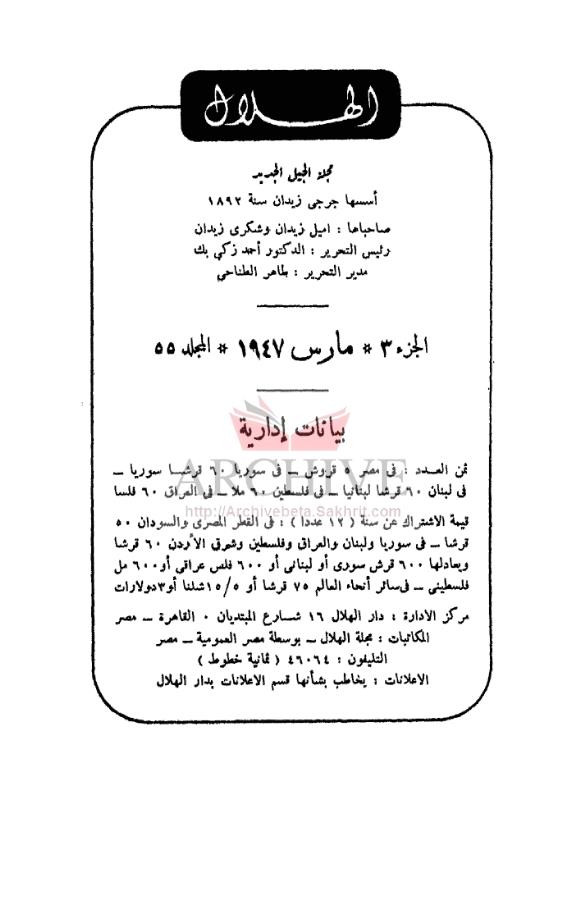 الهلال
مجلة الجيل الجديد
أسسها جرجى زيدان سنة ١٨٩٢
صاحباها : اميل زيدان وشكرى زيدان
رئيس التحرير : الدكتور أحمد زكى بك
مدير التحرير : طاهر الطناحي
الجزء ٣ * مارس ١٩٤٧ * المجلد ٥٥
بيانات إدارية
ARCHIVE
http://Archivebeta.Sakhrit.com
ثمن العدد : فى مصر ٥ قروش ــ فى سوريا ٦٠ قرشا سوريا ــ
فى لبنان ٦٠ قرشا لبنانيا ــ فى فلسطين ٦٠ ملا ــ فى العراق ٦٠ فلسا
قيمة الاشتراك عن سنة ( ١٢ عددا ) : فى القطر المصرى والسودان ٥٠
قرشا ــ فى سوريا ولبنان والعراق وفلسطين وشرق الأردن ٦٠ قرشا
ويعادلها ٦٠٠ قرش سورى أو لبنانى أو ٦٠٠ فلس عراقي أو ٦٠٠ مل
فلسطيني ــ فى سائر أنحاء العالم ٧٥ قرشا أو ١٥/٥ شلنا أو ٣ دولارات
مركز الادارة : دار الهلال ١٦ شارع المبتديان ٠ القاهرة ــ مصر
المكاتبات : مجلة الهلال ــ بوسطة مصر العمومية ــ مصر
التليفون : ٤٦٠٦٤ ( ثمانية خطوط )
الاعلانات : يخاطب بشأنها قسم الاعلانات بدار الهلال